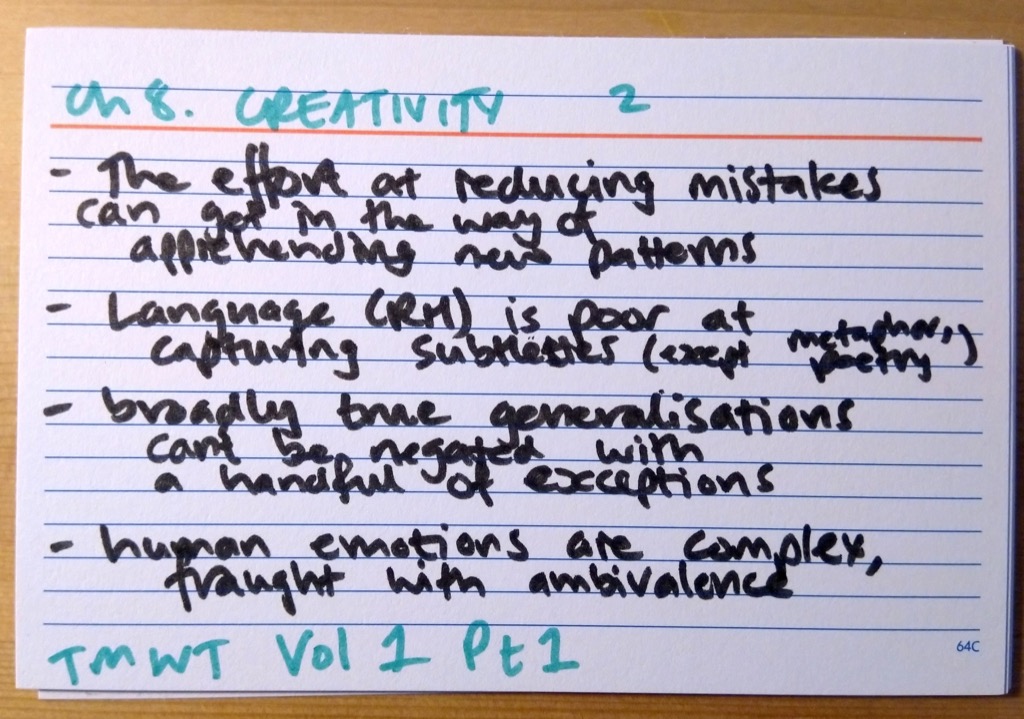 Ch 8. CREATIVITY 2
- The effort at reducing mistakes
can get in the way of
apprehending new patterns
- Language (RH) is poor at
capturing subtleties (except metaphor, poetry)
- broadly true generalisations
cant be negated with
a handful of exceptions
- human emotions are complex,
fraught with ambivalence
TMWT Vol 1 Pt 1
64C